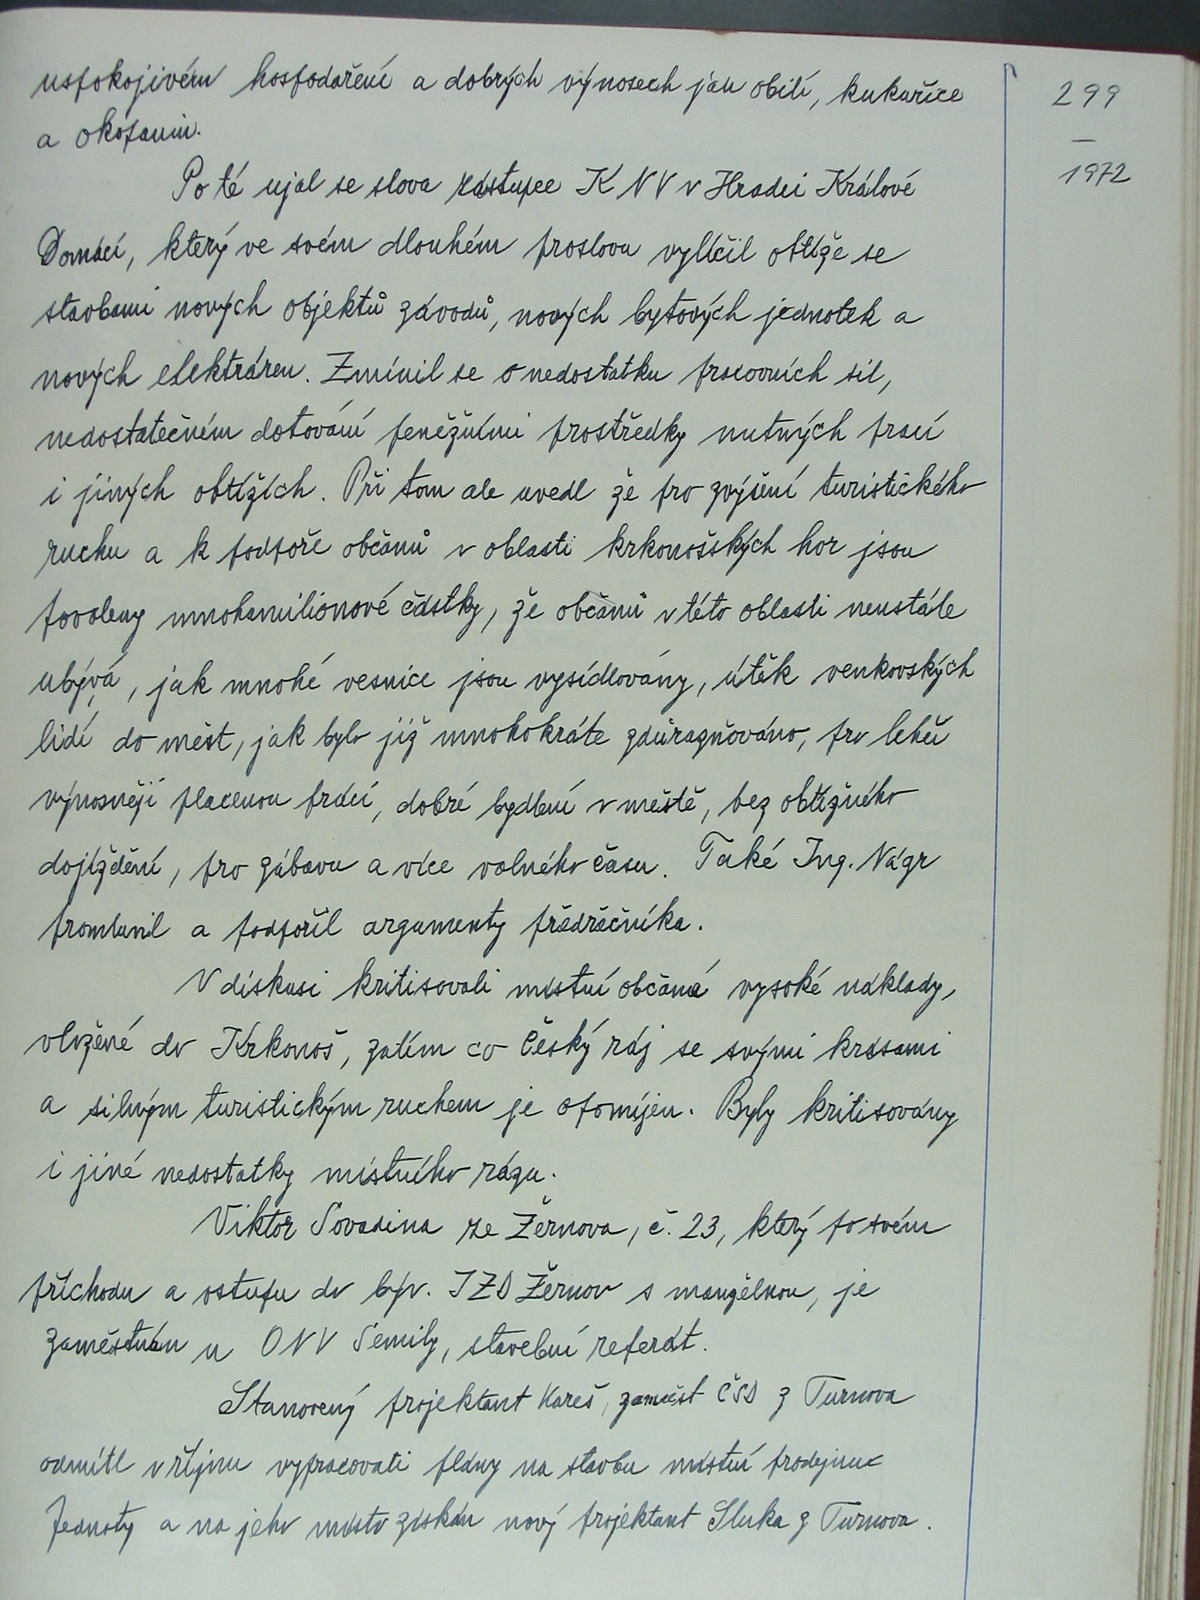 uspokojivém hospodaření a dobrých výnosech jak obilí, kukuřice
299
a okopanin.
—
1972
Po té ujal se slova zástupce KNV v Hradci Králové
Domácí, který ve svém dlouhém proslovu vylíčil obtíže se
stavbami nových objektů závodů, nových bytových jednotek a
nových elektráren. Zmínil se o nedostatku pracovních sil,
nedostatečném dotování peněžními prostředky nutných prací
i jiných obtížích. Při tom ale uvedl že pro zvýšení turistického
ruchu a k podpoře občanů v oblasti krkonošských hor jsou
povoleny mnohamilionové částky, že občanů v této oblasti neustále
ubývá, jak mnohé vesnice jsou vysídlovány, útěk venkovských
lidí do měst, jak bylo již mnohokráte zdůrazňováno, pro lehčí
výnosněji placenou práci, dobré bydlení v městě, bez obtížného
dojíždění, pro zábavu a více volného času. Také Ing. Nágr
promluvil a podpořil argumenty předřečníka.
V diskusi kritisovali místní občané vysoké náklady,
vložené do Krkonoš, zatím co Český ráj se svými krásami
a silným turistickým ruchem je opomíjen. Byly kritisovány
i jiné nedostatky místního rázu.
Viktor Sovadina ze Žernova, č. 23, který po svém
příchodu a vstupu do býv. JZD Žernov s manželkou, je
zaměstnán u ONV Semily, stavební referát.
Stanovený projektant Kareš, zaměst ČSD z Turnova
odmítl v říjnu vypracovati plány na stavbu místní prodejny
Jednoty a na jeho místo získán nový projektant Sluka z Turnova.